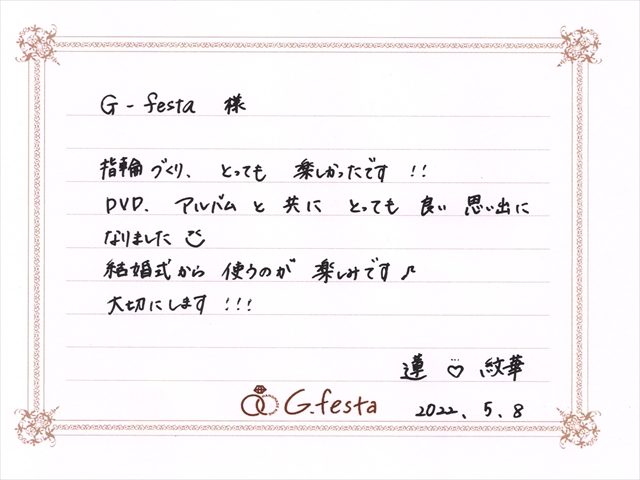 G-festa 様
指輪づくり、とっても 楽しかったです!!
DVD、アルバムと 共に とっても 良い 思い出に
なりました
結婚式から 使うのが 楽しみです♪
大切にします!!!
蓮 ♡ 紋華
G.festa 2022.5.8